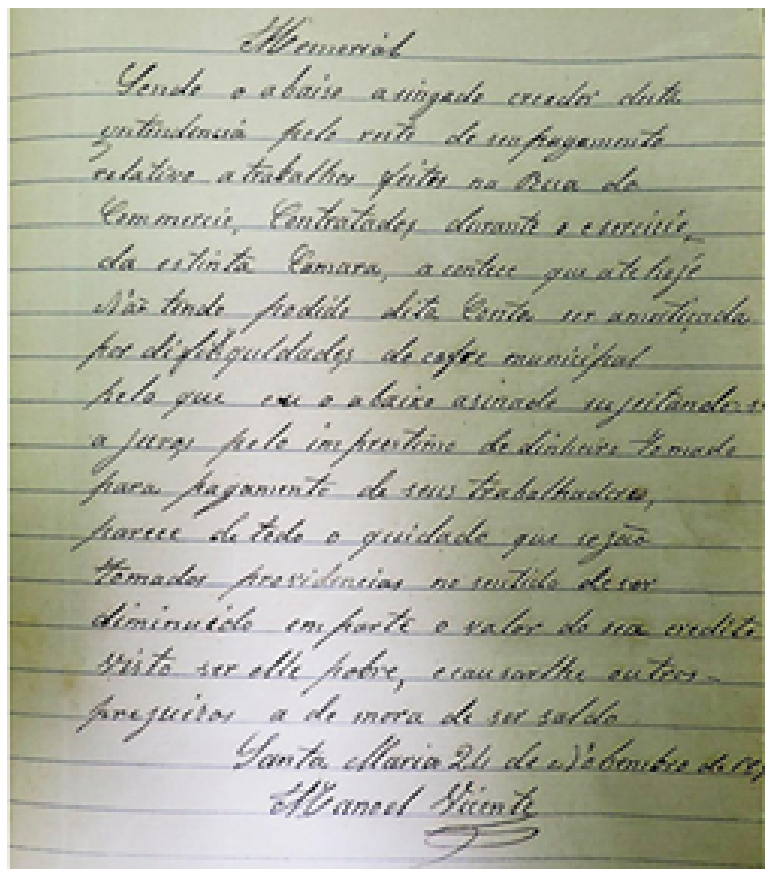 Memorial
Sendo o abaixo asingado creedor desta
intendencia pelo resto de seu pagamento
relativo a trabalhos feitos na Rua do
Commercio, Contratados durante o exercicio
da estinta Camara, a contece que ate hoje
Não tendo podido dita Conta ser amortiçada
por difiquldades de cofre municipal
pelo que eu o abaixo asinado sujeitando-s
a juros pelo imprestimo de dinheiro tomado
para pagamento de seus trabalhadores,
parece de todo o quidado que sejão
tomados providencias no sentido de ser
diminuido em parte o valor do seu credito
visto ser elle pobre, e causarlhe outros
prejuizos a de mora de ser saldo
Santa Maria 24 de Nobembro de
Manoel Vicente